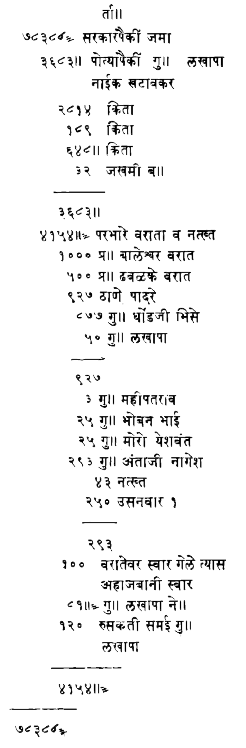 र्ता॥
७८३८৶ सरकारपैकीं जमा
३६८३॥ पोत्यापैकीं गु॥ लखापा
नाईक खटावकर
२८१५ किता
१८९ किता
६४८॥ किता
३२ जखमी ब॥
३६८३॥
४१५४॥৶ परभारे वराता व नत्ख्त
१००० प्र॥ बालेश्वर बरात
५०० प्र॥ ढवळके बरात
९२७ ठाणे पादरे
८७७ गु॥ धोंडजी भिसे
५० गु॥ लखापा
९२७
३ गु॥ महीपतराव
२५ गु॥ भोबन भाई
२५ गु॥ मोरो येशवंत
२९३ गु॥ अंताजी नागेश
४३ नत्ख्त
२५० उसनवार १
२९३
१०० वरातेवर स्वार गेले त्यास
अहाजबानी स्वार
८१॥৶ गु॥ लखापा ने॥
१२० रुसकती समई गु॥
लखापा
४१५४॥৶
७८३८৶